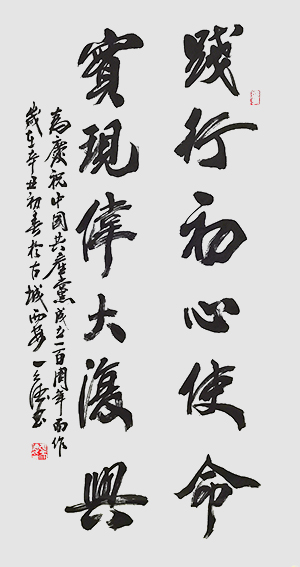 踐行初心使命
實現偉大復興
為慶祝中國共產黨成立一百周年而作
歲在辛丑初春於古城西安